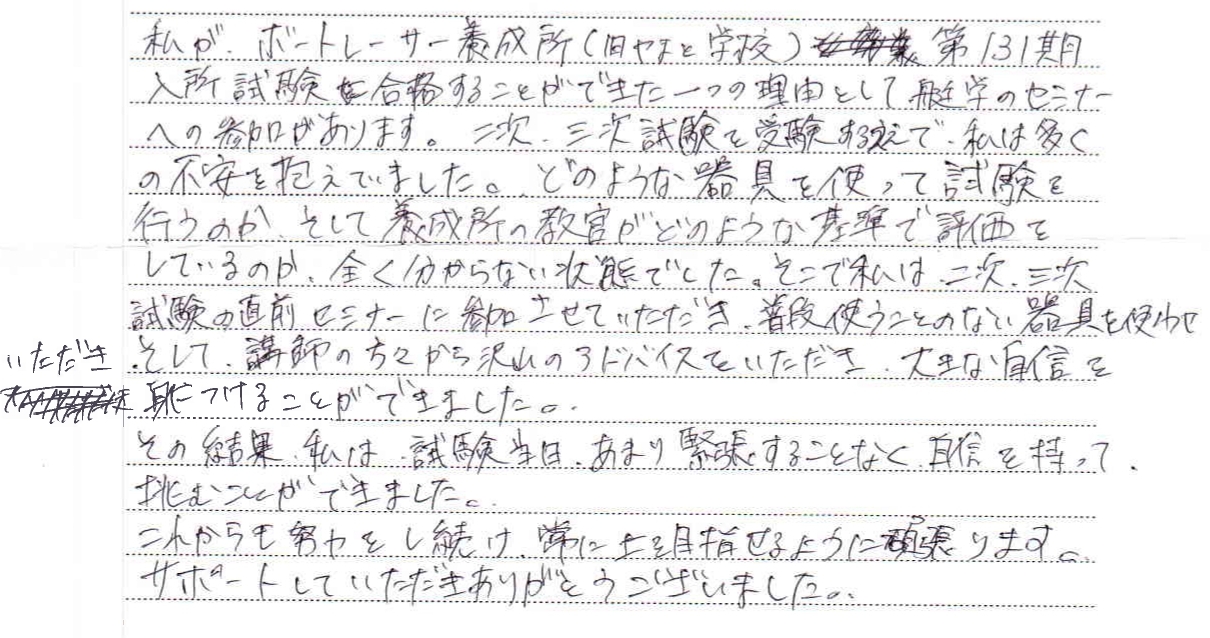 私が、ボートレーサー養成所(旧やまと学校) 第131期
入所試験を合格することができた一つの理由として艇学のセミナー
への参加があります。二次、三次試験を受験する上で、私は多く
の不安を抱えていました。どのような器具を使って試験を
行うのか、そして養成所の教官がどのような基準で評価を
しているのか、全く分からない状態でした。そこで私は、二次、三次
試験の直前セミナーに参加させていただき、普段使うことのない器具を使わせ
いただき、そして、講師の方々から沢山のアドバイスをいただき、大きな自信を
身につけることができました。
その結果、私は、試験当日、あまり緊張することなく、自信を持って、
挑むことができました。
これからも努力をし続け、常に上を目指せるように頑張ります。
サポートしていただきありがとうございました。